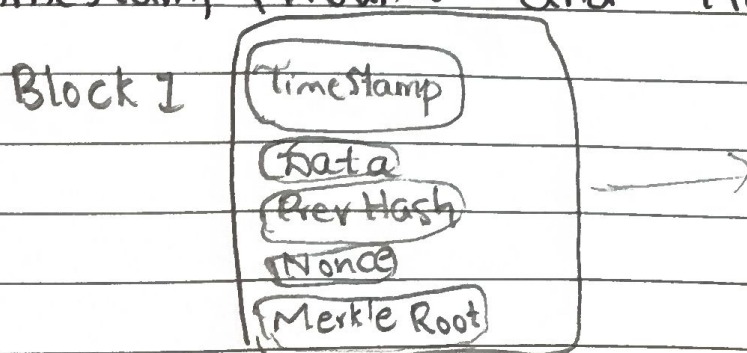 and
Block 1
TimeStamp
Data
Prev Hash
Nonce
Merkle Root